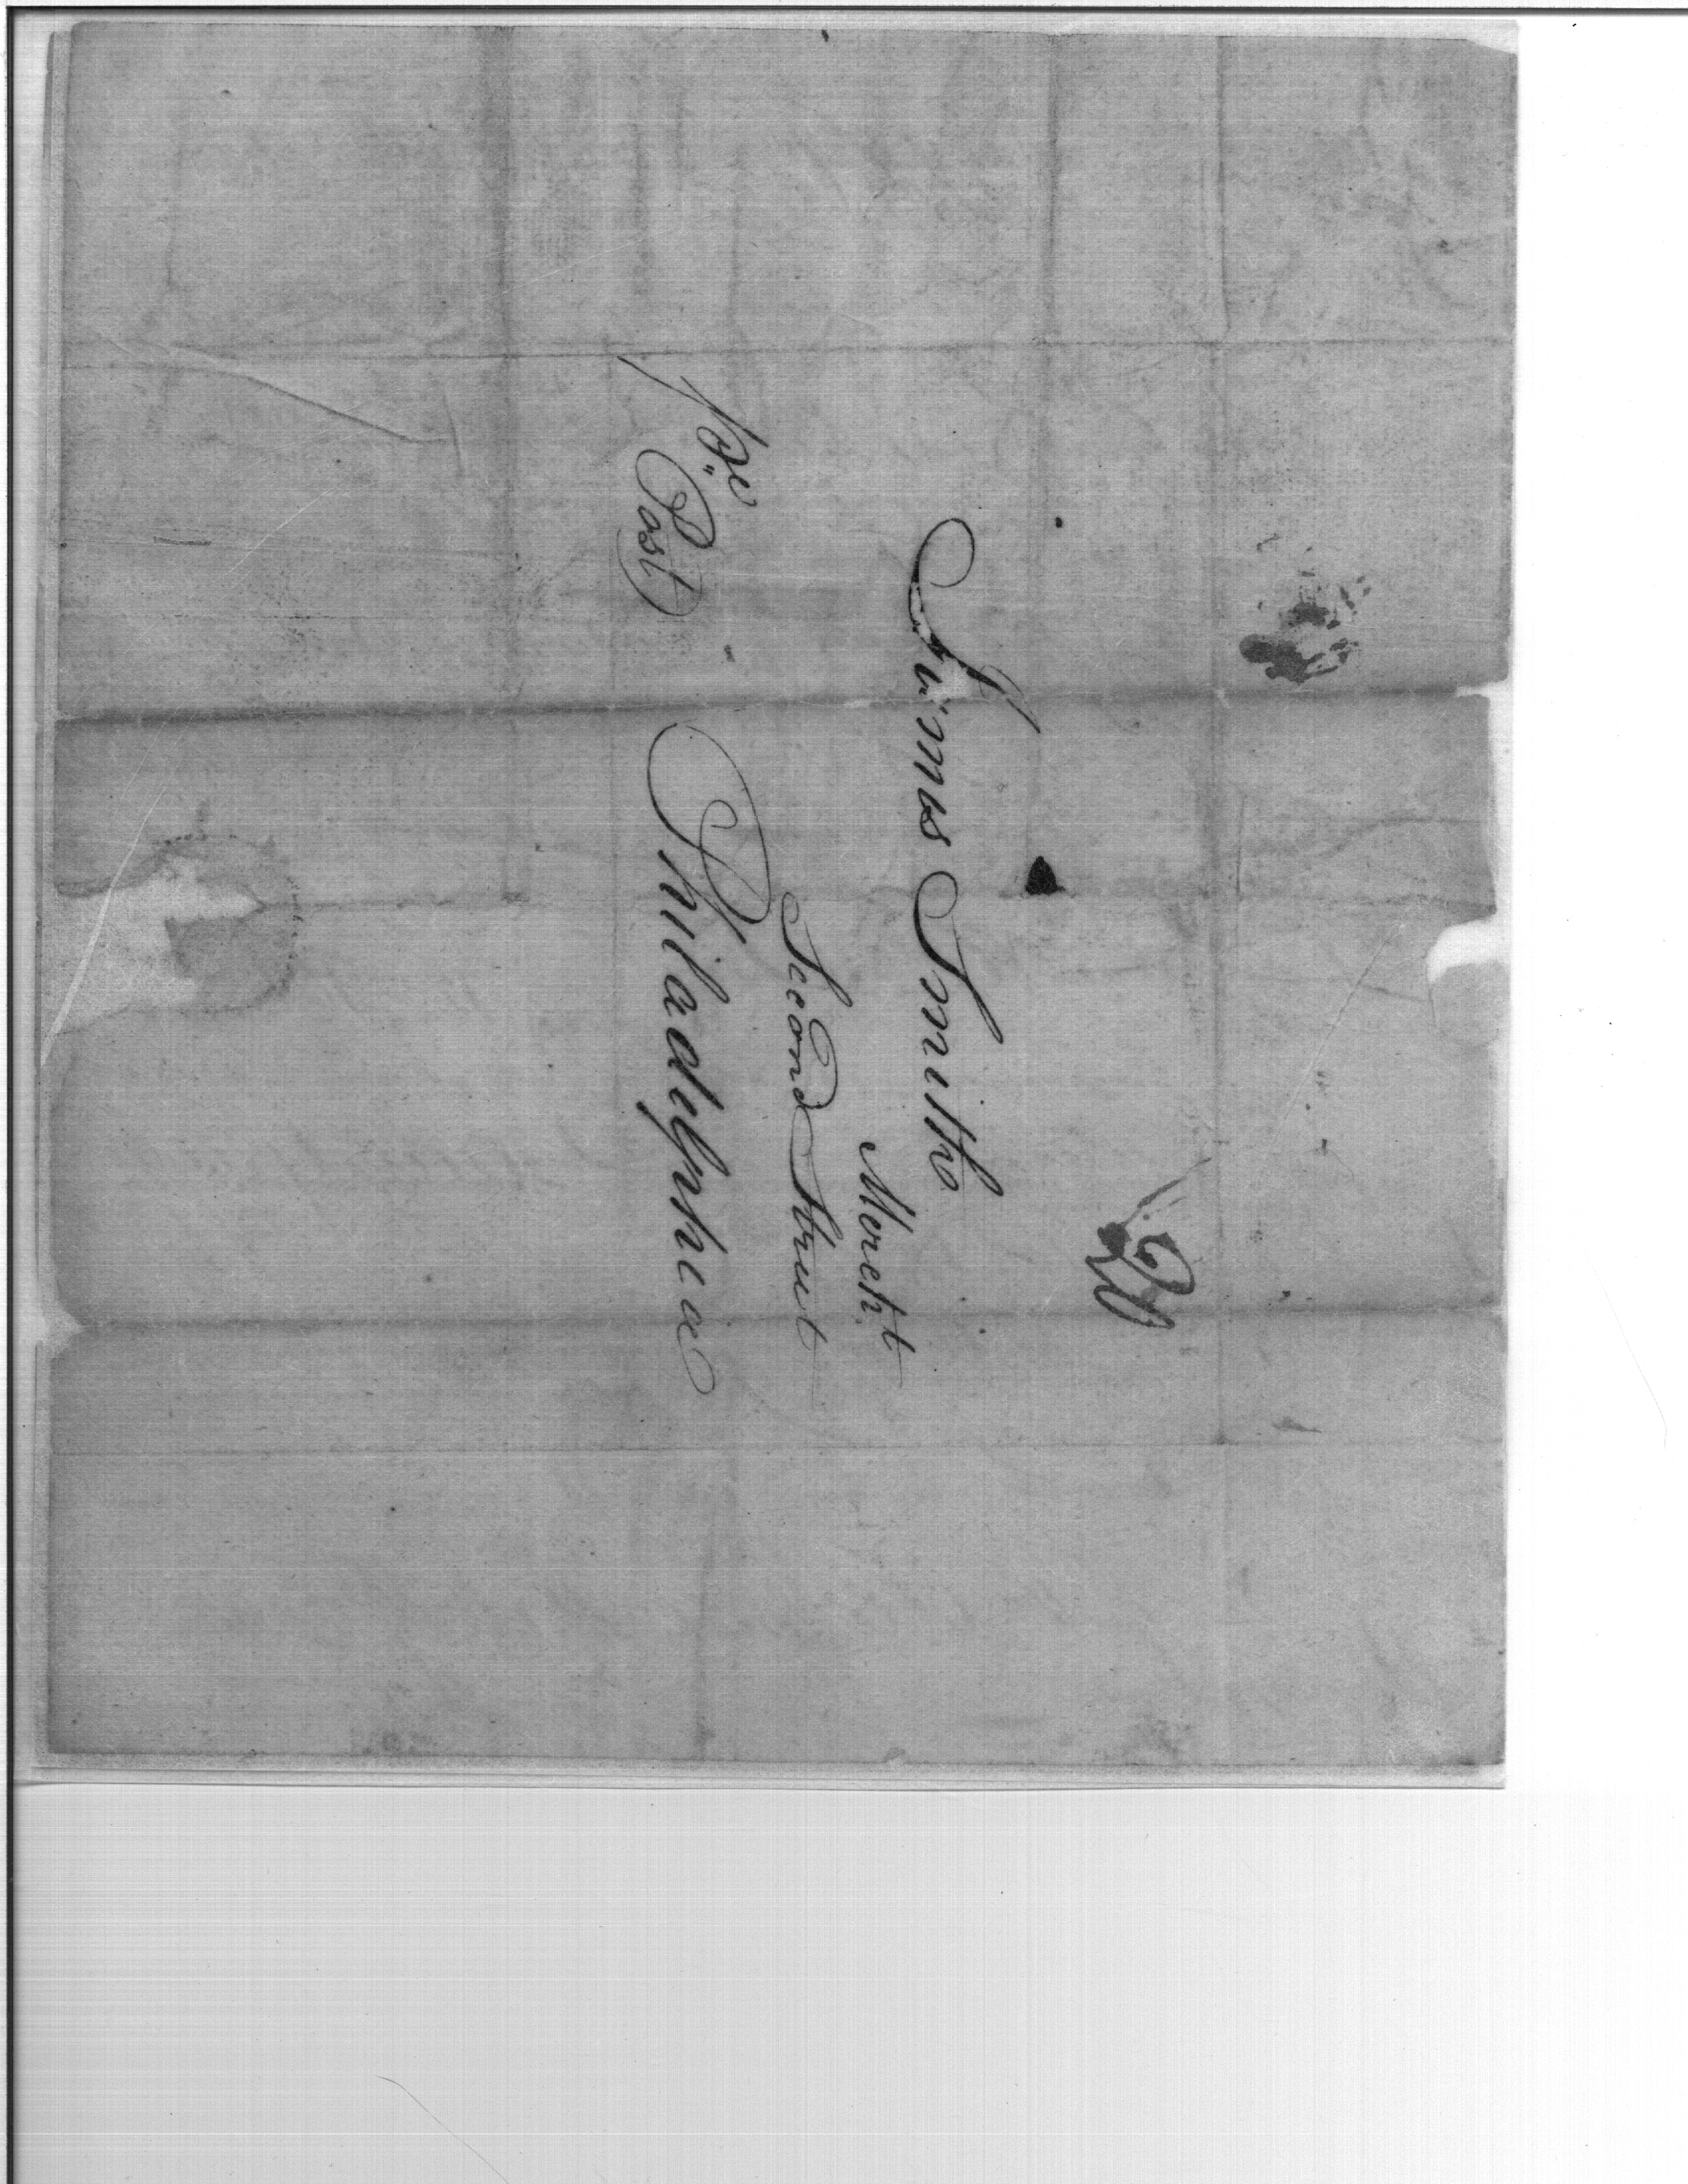 James Smith
Mercht
Second Street
Philadelphia
Post